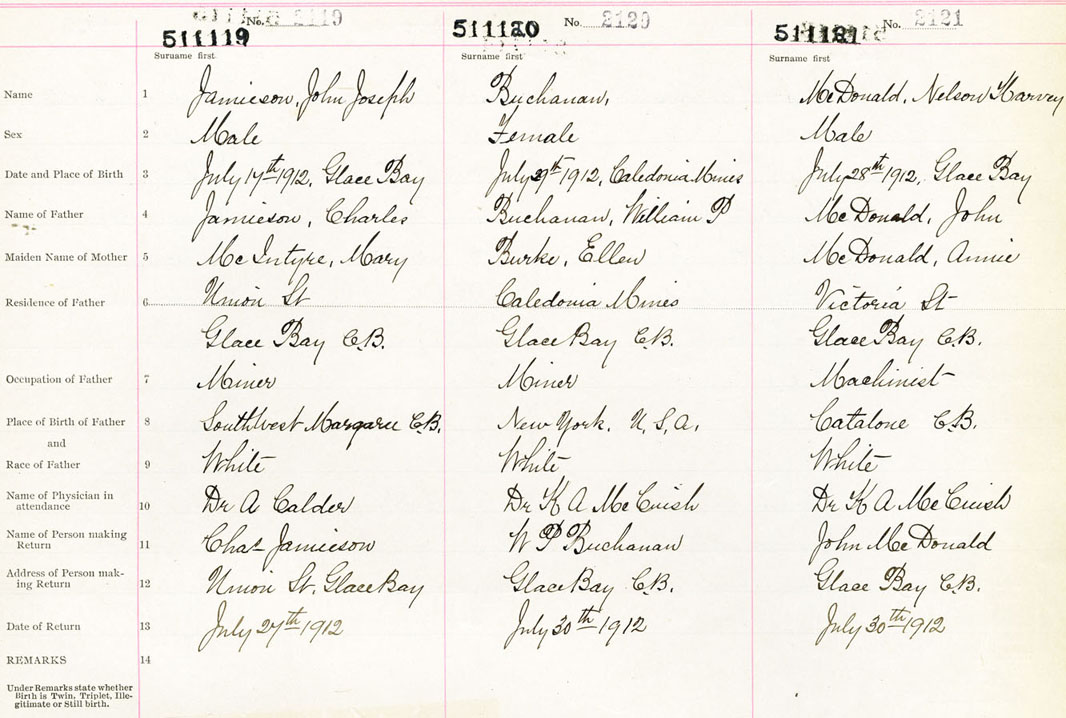 No. 2119
511119
Surname first
No. 2120
511120
Surname first
No. 2121
511121
Surname first
Name 1 Jamieson, John Joseph Buchanan, McDonald, Nelson Harvey
Sex 2 Male Female Male
Date and Place of Birth 3 July 17th 1912, Glace Bay July 29th 1912, Caledonia Mines July 28th 1912, Glace Bay
Name of Father 4 Jamieson, Charles Buchanan, William P McDonald, John
Maiden Name of Mother 5 McIntyre, Mary Burke, Ellen McDonald, Annie
Residence of Father 6 Union St Caledonia Mines Victoria St
Glace Bay C.B. Glace Bay C.B. Glace Bay C.B.
Occupation of Father 7 Miner Miner Machinist
Place of Birth of Father 8 Southwest Margaree C.B. New York. U.S.A. Catalone C.B.
and
Race of Father 9 White White White
Name of Physician in
attendance 10 Dr A Calder Dr K A McCuish Dr K A McCuish
Name of Person making
Return 11 Chas Jamieson W P Buchanan John McDonald
Address of Person mak-
ing Return 12 Union St. Glace Bay Glace Bay C.B. Glace Bay C.B.
Date of Return 13 July 27th 1912 July 30th 1912 July 30th 1912
REMARKS 14
Under Remarks state whether
Birth is Twin, Triplet, Ille-
gitimate or Still birth.